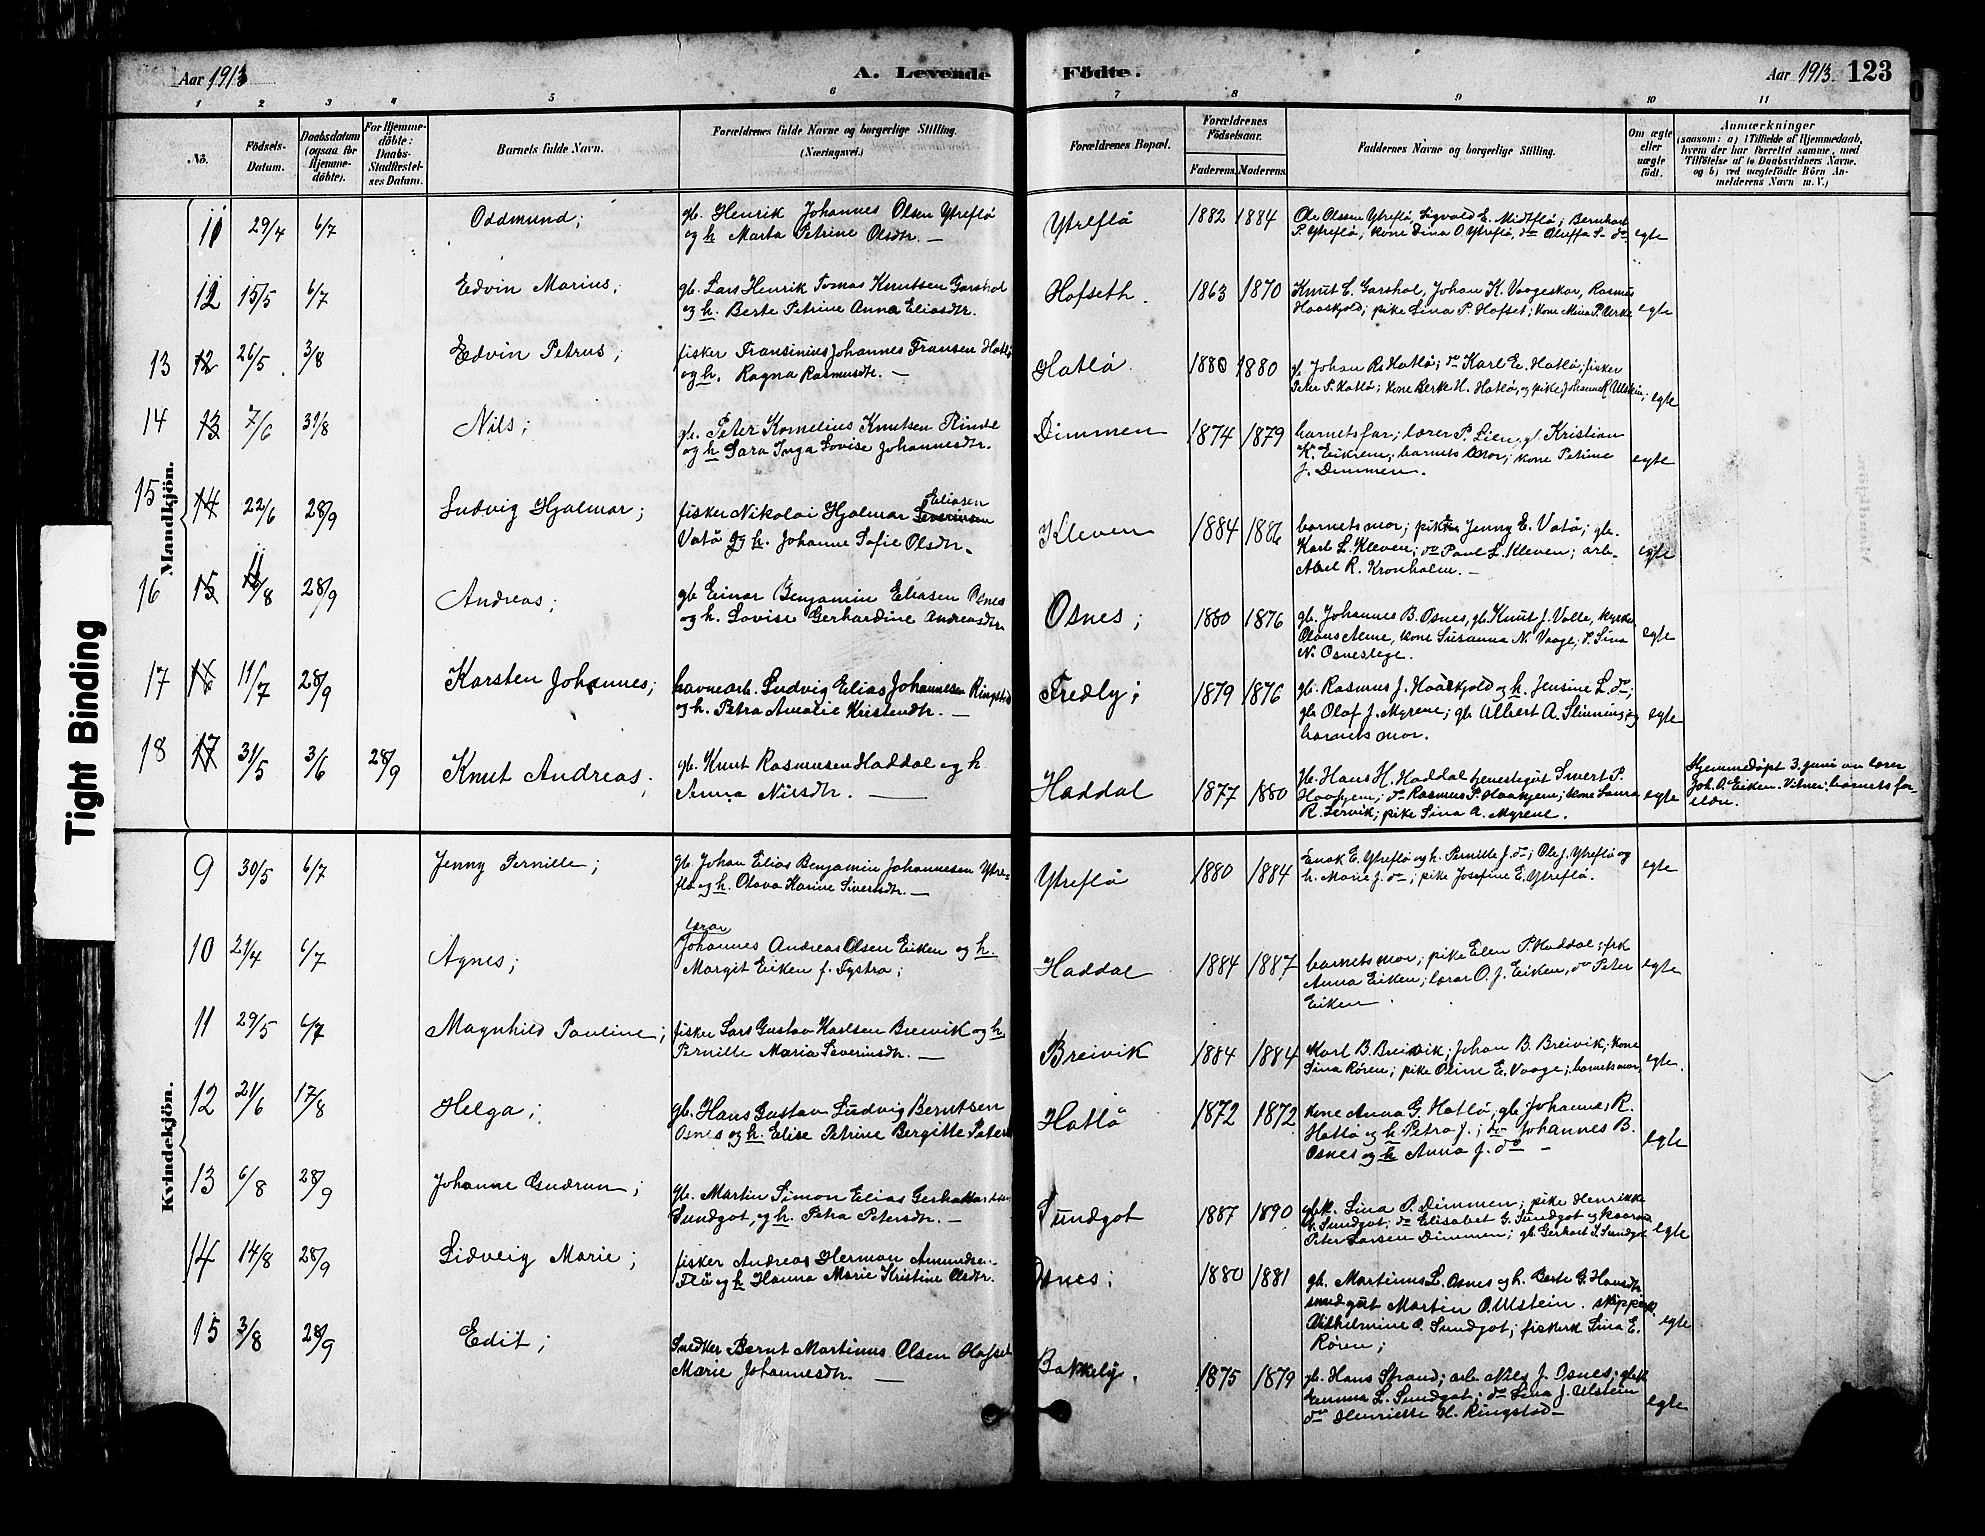 Aar 1913
A. Levende Födte.
Aar 1913. 123
1 2 3 4 5 6 7 8 9 10 11
No.
Födsels-Datum.
Daabsdatum (ogsaa for Hjemme-döbte).
For Hjemme-döbte: Daabs-Stadfæstel-ses Datum.
Barnets fulde Navn.
Forældrenes fulde Navne og borgerlige Stilling. (Næringsvei.)
Forældrenes Bopæl.
Forældrenes Födselsaar.
Faderens. Moderens.
Faddernes Navne og borgerlige Stilling.
Om ægte eller uægte födt.
Anmærkninger
(saasom: a) i Tilfælde af Hjemmedaab,
hvem der har forrettet samme, med
Tilföielse af to Daabsvidners Navne.
og b) ved uægtefödte Börn An-
melderens Navn m. V.)
Mandkjön.
11 29/4 6/7 Oddmund; gb. Henrik Johannes Olsen Ytreflö
og h Marta Petrine Olsdtr. —
Ytreflö 1882 1884 Ole Olssen Ytreflö, Sigvald E. Midtflö; Bernhard
P. Ytreflö; kone Dina O. Ytreflö, do Oluffa S. do egte
12 15/5 6/7 Edvin Marius; gb. Lars Henrik Tomas Knutsen Garshol
og h. Berte Petrine Anna Eliasdtr.
Hofseth. 1863 1870 Knut E. Garshol, Johan K. Vaageskar, Rasmus
Haaskjold; pike Lina P. Hofset; kone Mina P. Urke egte
13 12 26/5. 3/8 Edvin Petrus; fisker Fransinius Johannes Fransen Hatlö
og h. Ragna Rasmusdtr. —
Hatlö. 1880 1880 gb. Johan R. Hatlö; do Karl E. Hatlö; fisker
Peter P. Hatlö; kone Berte H. Hatlö, og pike Johanne R Ulstein; egte
14 13 7/6 31/8 Nils; gb. Peter Kornelius Knutsen Rinde
og h Sara Inga Lovise Johannesdtr.
Dimmen 1874 1879 barnets far; lærer P. Lien, gb Kristian
K. Eikrem; barnets mor; kone Petrine
J. Dimmen. egte
15 14 22/6 28/9 Ludvig Hjalmar; fisker Nikolai Hjalmar Severinsen Eliasen
Vatö og h. Johanne Sofie Olsdtr.
Kleven 1884 1886 barnets mor; pike Jenny E. Vatö; gb.
Karl L. Kleven; do Paul L. Kleven; arb.
Abel R. Kronholm. — egte
16 15 11/8 28/9 Andreas; gb Einar Benjamin Eliasen Osnes
og h. Lovise Gerhardine Andreasdtr
Osnes; 1880 1876 gb. Johannes B. Osnes, gb Knut J. Valle,
kone Susanna N. Vaage; P. Lina
N. Osneslege. egte
17 16 11/7 28/9 Karsten Johannes; havnearb. Ludvig Elias Johannesen Ringstad
og h. Petra Amalie Kristendtr. —
Fredly; 1879 1876 gb. Rasmus J. Haaskjold og h. Jensine L. do;
gb Olaf J. Myrene; gb Albert A. Slinning; og
barnets mor. egte
18 17 31/5 3/6 28/9 Knut Andreas; gb. Knut Rasmussen Haddal og h
Anna Nilsdtr. —
Haddal 1877 1880 gb. Hans H. Haddal tjenestegut Sivert P.
Haahjem; do Rasmus P. Haahjem; kone Laura
R. Lervik; pike Lina A. Myrene. egte
Hjemmedöpt 3. juni av lærer
Joh. A. Eiken. Vitner: barnets for-
eldre.
Kvindekjön.
9 30/5 6/7 Jenny Pernille; gb. Johan Elias Benjamin Johannesen Ytre-
flö og h. Olava Karine Sivertsdtr. —
Ytreflö 1880 1884 Enok E. Ytreflö og h. Pernille J. do; Ole J. Ytreflö og
h. Marie J. do; pike Josefine E. Ytreflö. egte
10 21/4 6/7 Agnes; lærer
Johannes Andreas Olsen Eiken og h.
Margit Eiken f. Tystra;
Haddal 1884 1887 barnets mor; pike Elen P. Haddal; frk
Anna Eiken; lærar O. J. Eiken, do Peter
Eiken. egte
11 29/5 6/7 Magnhild Pauline; fisker Lars Gustav Karlsen Breivik og h
Pernille Maria Severinsdtr. —
Breivik 1884 1884 Karl B. Breivik; Johan B. Breivik; kone
Lina Rören; pike Oline E. Vaage; barnets mor, egte.
12 21/6 17/8 Helga; gb. Hans Gustav Ludvig Berntsen
Osnes og h. Elise Petrine Bergitte Peters
Hatlö 1872 1872 kone Anna G. Hatlö; gb Johannes R.
Hatlö og h Petra J.; do Johannes B.
Osnes og h Anna J. do — egte
13 6/8 28/9 Johanne Gudrun; gb. Martin Simon Elias
Sundgot, og h. Petra Petersdtr. —
Sundgot 1887 1890 gbk. Lina P. Dimmen; pike Henrikke
G. Sundgot; do Elisabet G. Sundgot og
Peter Larsen Dimmen; gb Gerhart I. Sundgot egte
14 14/8 28/9 Sidveig Marie; fisker Andreas Herman Amundsen
Flö og h Hanna Marie Kristine Olsdtr.
Osnes; 1880 1881 gb. Martinus L. Osnes og h. Berte G. Hansdtr
smedgut Martin O. Ulstein. skipperk
Vilhelmine O. Sundgot; fiskerk Lina E.
Rören; egte
15 3/8 28/9 Edit; Snedker Bernt Martinus Olsen Hofset
Marie Johannesdtr. —
Bakkely. 1875 1879 gb. Hans Strand; arb Nils J. Osnes; gbk
Emma L. Sundgot; do Lina J. Ulstein
do Henriette H. Ringstad — egte
Tight Binding